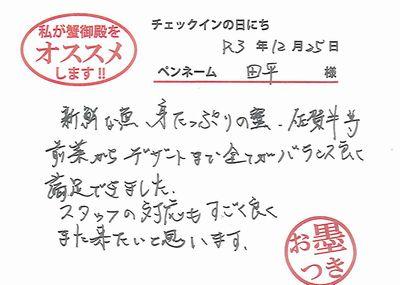 私が蟹御殿を
オススメ
します!!
チェックインの日にち
R3年12月25日
ペンネーム 田平 様
新鮮な魚、身たっぷりの蟹、佐賀牛等
前菜からデザートまで全てがバランス良く
満足できました。
スタッフの対応もすごく良く
また来たいと思います。
お墨
つき